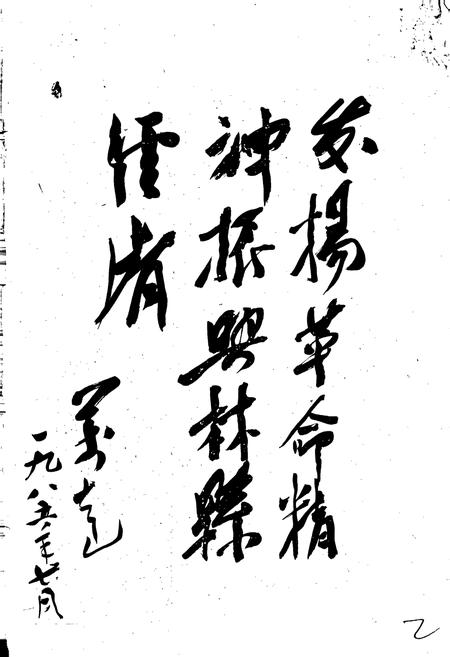 发揚革命精
神振興林縣
經济
萬达
一九八五年七月